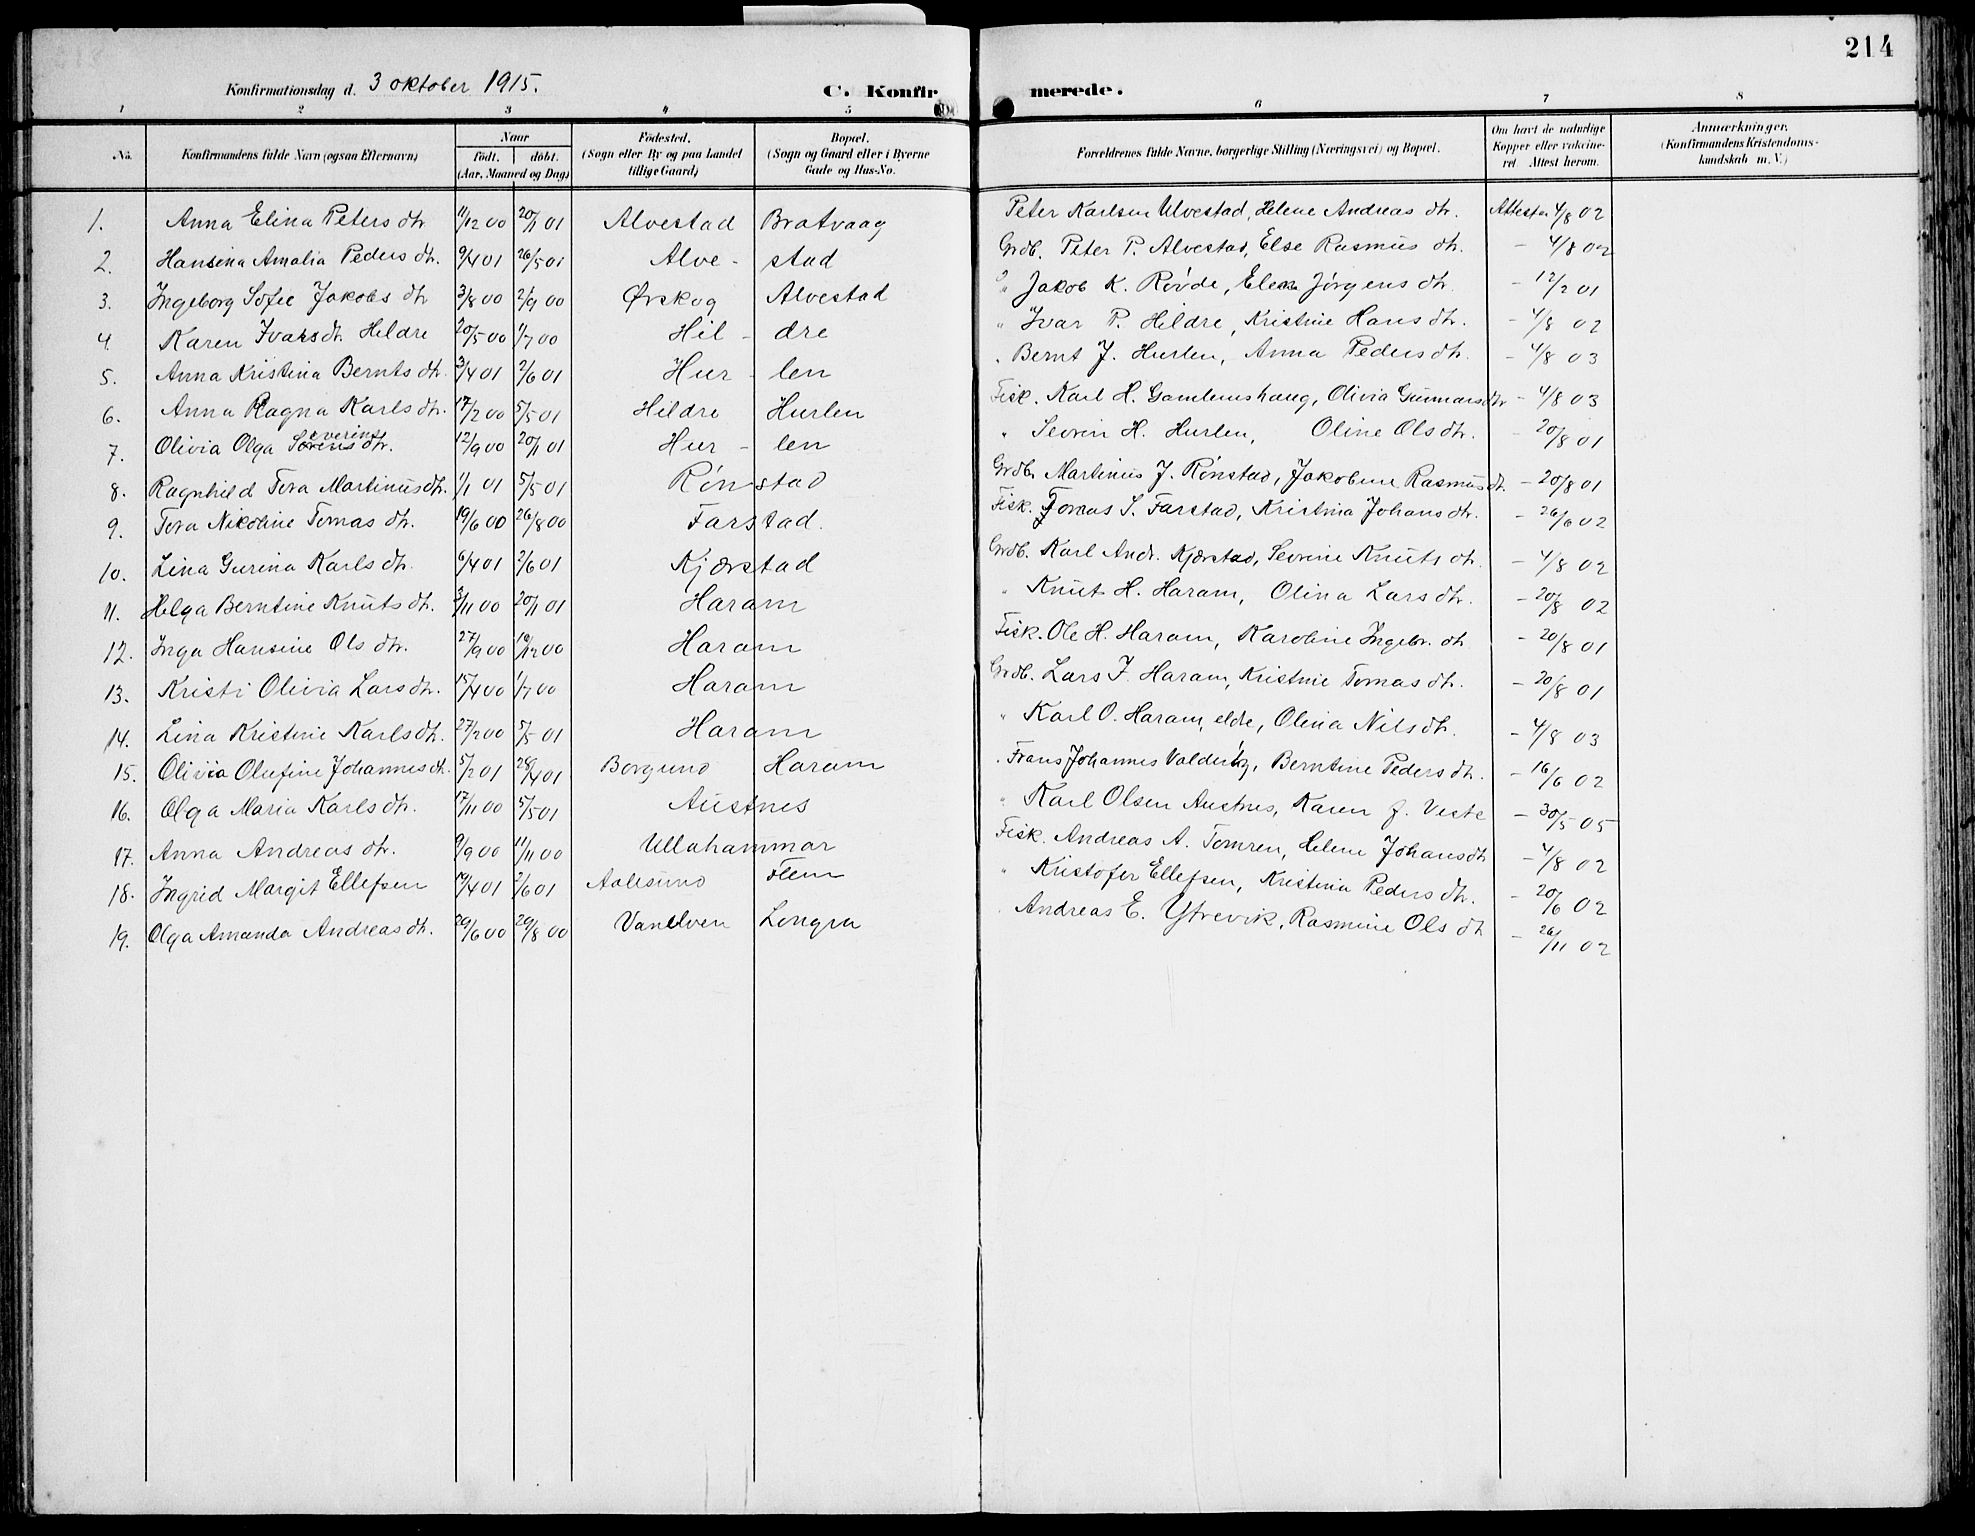 214
Konfirmationsdag d. 3 oktober 1915. C. Konfir merede.
1 2 3 4 5 6 7 8
No. Konfirmandens fulde Navn (ogsaa Efternavn) Naar födt. döbt. (Aar, Maaned og Dag) Födested. (Sogn eller By og paa Landet tillige Gaard) Bopæl. (Sogn og Gaard eller i Byerne Gade og Hus-No. Forældrenes fulde Navne, borgerlige Stilling (Næringsvei) og Bopæl. Om havt de naturlige Kopper eller vakcineret. Attest herom. Anmærkninger. (Konfirmandens Kristendomskundskab m. V.)
1. Anna Elina Peters dtr 11/12 00 20/1 01 Alvestad Bratvaag Peter Karlsen Ulvestad, Helene Andreas dtr. Attest av 4/8 02
2. Hansina Amalia Peders dtr. 9/4 01 26/5 01 Alve - stad Grdb. Peter P. Alvestad, Else Rasmus dtr. - 4/8 02
3. Ingeborg Sofie Jakobs dtr 3/8 00 2/9 00 Ørskog Alvestad " Jakob K. Røvde, Elen Jörgens dtr. - 12/2 01
4. Karen Ivarsdtr. Hildre 20/5 00 1/7 00 Hil - dre " Ivar P. Hildre, Kristine Hans dtr. - 4/8 02
5. Anna Kristina Bernts dtr. 3/4 01 2/6 01 Hur - len " Bernt J. Hurlen, Anna Peders dtr. - 4/8 03
6. Anna Ragna Karls dtr. 17/2 00 5/5 01 Hildre Hurlen Fisk. Karl H. Gamlemshaug, Olivia Gunnarsdtr - 4/8 03
7. Olivia Olga Severins dtr. 12/9 00 20/1 01 Hur - len " Sevrin H. Hurlen, Oline Ols dtr. - 20/8 01
8. Ragnhild Tora Martinusdtr. 1/1 01 5/5 01 Rönstad Grdb. Martinus J. Rönstad, Jakobine Rasmusdtr. - 20/8 01
9. Tora Nicoline Tomas dtr. 19/6 00 26/8 00 Farstad. Fisk. Tomas S. Farstad, Kristina Johans dtr. - 26/6 02
10. Lina Gurina Karls dtr. 6/4 01 2/6 01 Kjærstad Grdb. Karl Andr. Kjærstad, Sevrine Knuts dtr. - 4/8 02
11. Helga Berntine Knuts dtr. 3/11 00 20/1 01 Haram " Knut H. Haram, Olina Lars dtr. - 20/8 02
12. Inga Hansine Ols dtr. 27/9 00 19/12 00 Haram Fisk. Ole H. Haram, Karoline Ingebr. dtr - 20/8 01
13. Kristi Olivia Lars dtr. 15/4 00 1/7 00 Haram Grdb. Lars J. Haram, Kristine Tomas dtr. - 20/8 01
14. Lina Kristine Karls dtr. 27/2 00 5/5 01 Haram " Karl O. Haram, eldre, Olina Nils dtr. - 4/8 03
15. Olivia Olufine Johannes dtr. 5/2 01 28/4 01 Borgund Haram " Frans Johannes Valderhg, Berntine Peders dtr. - 16/6 02
16. Olga Maria Karls dtr. 17/11 00 5/5 01 Austnes " Karl Olsen Austnes, Karen f. Veste - 30/5 05
17. Anna Andreas dtr. 9/9 00 11/11 00 Ullahammar Fisk. Andreas A. Tomren, Helene Johansdtr - 4/8 02
18. Ingrid Margit Ellefsen 14/4 01 2/6 01 Aalesund Flem " Kristofer Ellefsen, Kristina Peders dtr. - 20/6 02
19. Olga Amanda Andreas dtr. 29/6 00 29/8 00 Vanelven Longva " Andreas E. Ytrevik, Rasmine Ols dtr - 26/11 02